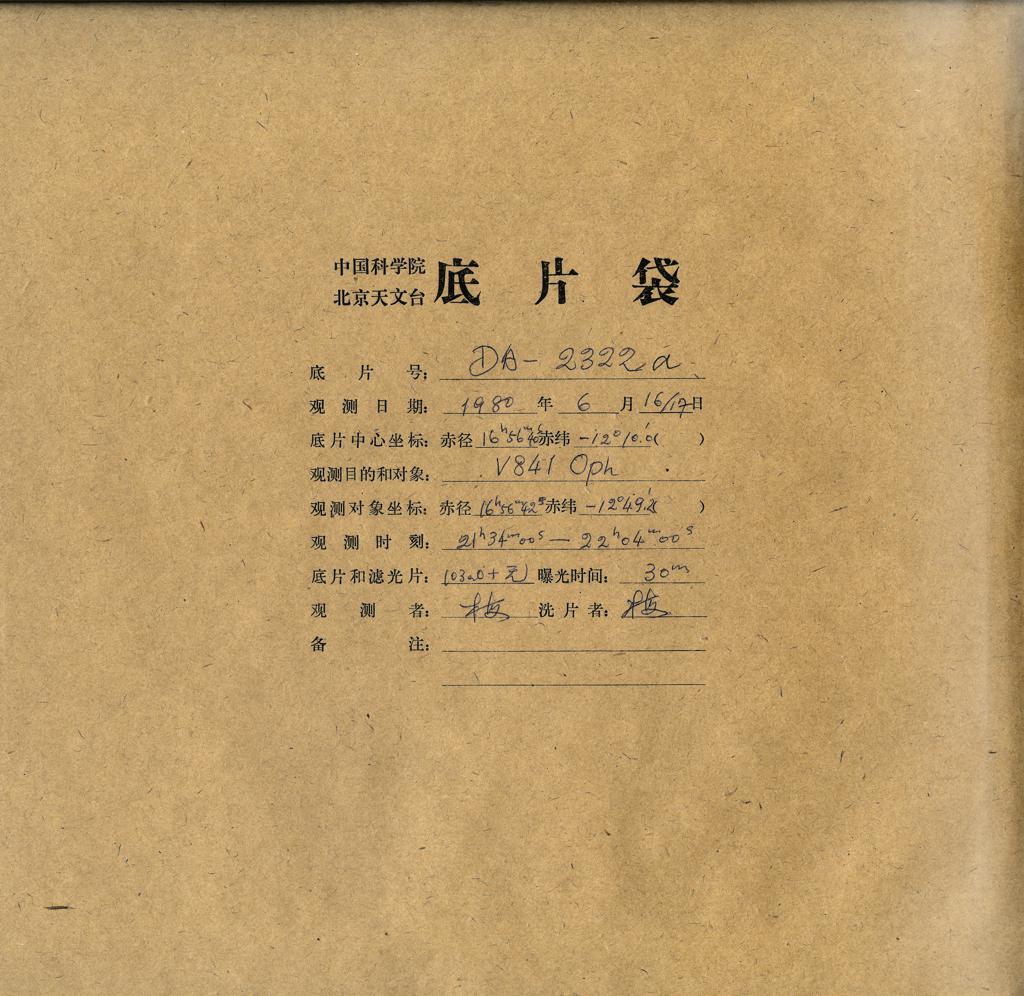 中国科学院
北京天文台
底片袋
底片号: DA-2322a
观测日期: 1980年 6月 16/17日
底片中心坐标: 赤径 16ʰ56ᵐ 赤纬 -12°10.0′( )
观测目的和对象: V841 Oph
观测对象坐标: 赤径 16ʰ56ᵐ42ˢ 赤纬 -12°49.′( )
观测时刻: 21ʰ34ᵐ00ˢ — 22ʰ04ᵐ00ˢ
底片和滤光片: 103aO+无 曝光时间: 30ᵐ
观测者: 梅 洗片者: 梅
备注: